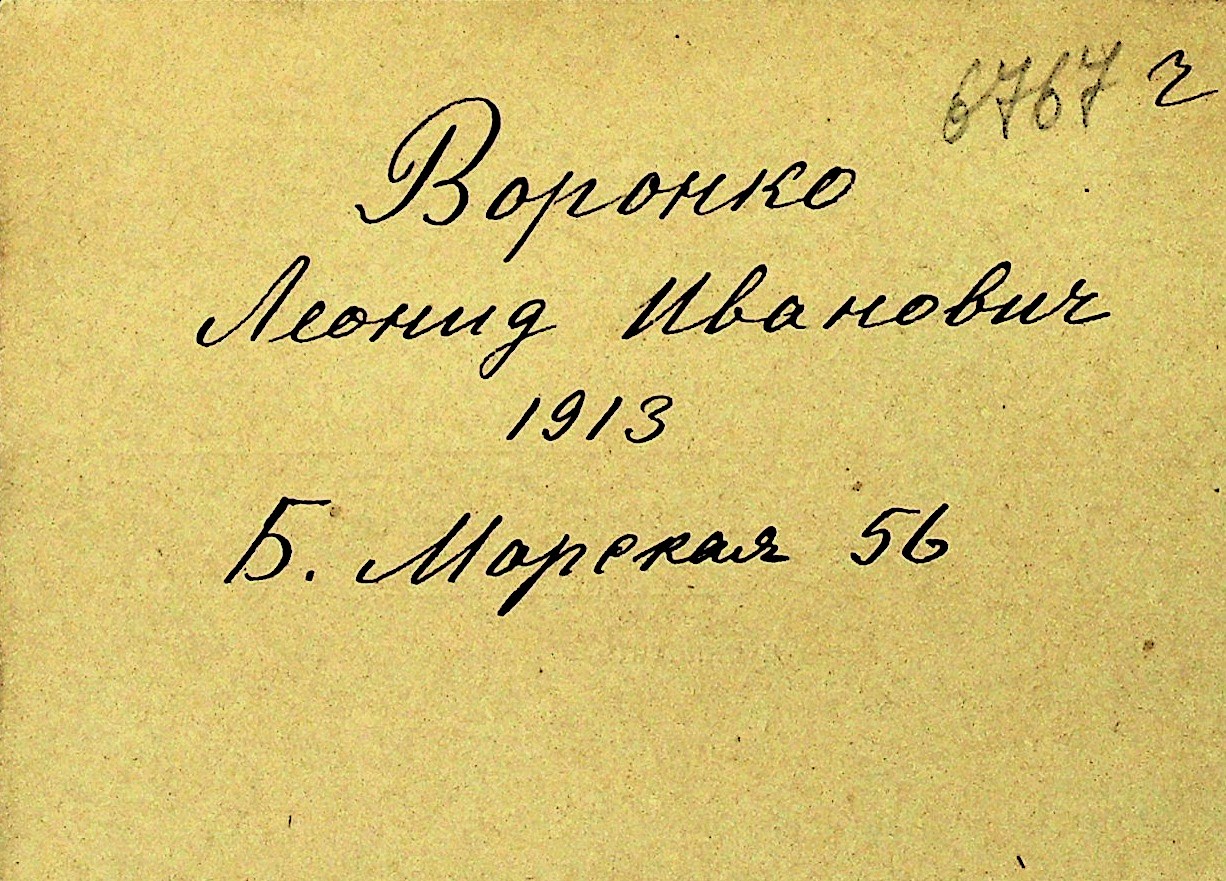 6767 г
Воронко
Леонид Иванович
1913
Б. Морская 56